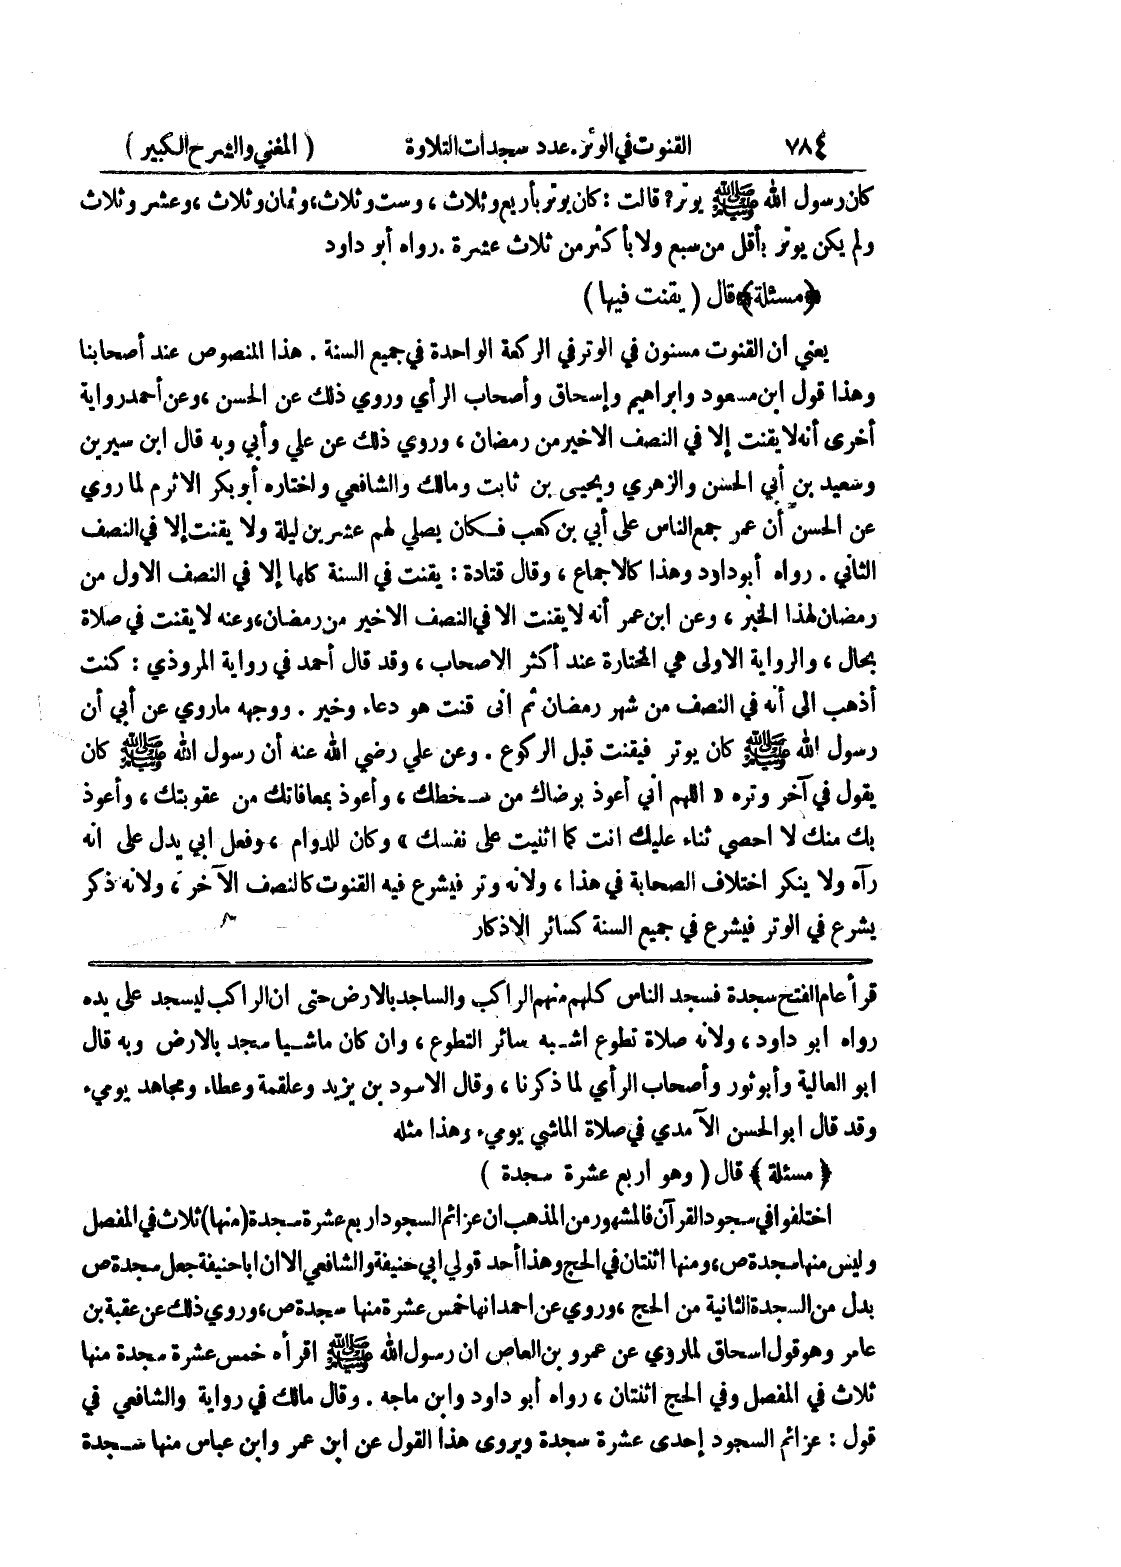 ٧٨٤ القنوت في الوتر. عدد سجدات التلاوة ( المغني والشرح الكبير )
كان رسول الله ﷺ يوتر؟ قالت : كان يوتر بأربع وثلاث ، وست وثلاث، وثمان وثلاث ، وعشر وثلاث
ولم يكن يوتر بأقل من سبع ولا بأ كثر من ثلاث عشرة . رواه أبو داود
﴿مسئلة﴾ قال ( يقنت فيها )
يعني ان القنوت مسنون في الوتر في الركعة الواحدة في جميع السنة . هذا المنصوص عند أصحابنا
وهذا قول ابن مسعود وابراهيم وإسحاق وأصحاب الرأي وروي ذلك عن الحسن ، وعن أحمد رواية
أخرى أنه لا يقنت إلا في النصف الاخير من رمضان ، وروي ذلك عن علي وأبي وبه قال ابن سيرين
وسعيد بن أبي الحسن والزهري ويحيى بن ثابت ومالك والشافعي واختاره أبو بكر الاثرم لما روي
عن الحسن أن عمر جمع الناس على أبي بن كعب فكان يصلي لهم عشرين ليلة ولا يقنت إلا في النصف
الثاني . رواه أبو داود وهذا كالاجماع ، وقال قتادة : يقنت في السنة كلها إلا في النصف الاول من
رمضان لهذا الخبر ، وعن ابن عمر أنه لا يقنت الا في النصف الاخير من رمضان، وعنه لا يقنت في صلاة
بحال ، والرواية الاولى هي المختارة عند أكثر الاصحاب ، وقد قال أحمد في رواية المروذي : كنت
أذهب الى أنه في النصف من شهر رمضان ثم انى قنت هو دعاء وخير . ووجهه ماروي عن أبي أن
رسول الله ﷺ كان يوتر فيقنت قبل الركوع . وعن علي رضي الله عنه أن رسول الله ﷺ كان
يقول في آخر وتره « اللهم اني أعوذ برضاك من سخطك ، وأعوذ بمعافاتك من عقوبتك ، وأعوذ
بك منك لا احصي ثناء عليك انت كما اثنيت على نفسك » وكان للدوام ، وفعل ابي يدل على انه
رآه ولا ينكر اختلاف الصحابة في هذا ، ولانه وتر فيشرع فيه القنوت كالنصف الآخر ، ولانه ذكر
يشرع في الوتر فيشرع في جميع السنة كسائر الاذكار
قرأ عام الفتح سجدة فسجد الناس كلهم منهم الراكب والساجد بالارض حتى ان الراكب ليسجد على يده
رواه ابو داود ، ولانه صلاة تطوع اشبه سائر التطوع ، وان كان ماشيا سجد بالارض وبه قال
ابو العالية وأبو ثور وأصحاب الرأي لما ذكرنا ، وقال الاسود بن يزيد وعلقمة وعطاء ومجاهد يومىء
وقد قال ابو الحسن الآمدي في صلاة الماشي يومىء وهذا مثله
﴿ مسئلة ﴾ قال ( وهو اربع عشرة سجدة )
اختلفوا في سجود القرآن فالمشهور من المذهب ان عزائم السجود اربع عشرة سجدة (منها) ثلاث في المفصل
وليس منها سجدة ص، ومنها اثنتان في الحج وهذا أحد قولي ابي حنيفة والشافعي الا ان ابا حنيفة جعل سجدة ص
بدل من السجدة الثانية من الحج ، وروي عن احمد انها خمس عشرة منها سجدة ص، وروي ذلك عن عقبة بن
عامر وهو قول اسحاق لما روي عن عمرو بن العاص ان رسول الله ﷺ اقرأه خمس عشرة سجدة منها
ثلاث في المفصل وفي الحج اثنتان ، رواه أبو داود وابن ماجه . وقال مالك في رواية والشافعي في
قول : عزائم السجود إحدى عشرة سجدة ويروى هذا القول عن ابن عمر وابن عباس منها سجدة